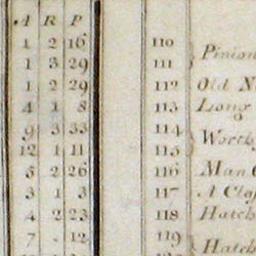 A R P
1 2 16 110
1 3 29 111 Pinion
1 2 29 112 Old
4 1 8 113 Long
9 3 33 114
12 1 11 115 Worth
5 2 26 116 Man
3 1 3 117 A
4 2 23 118 Hatch
7 . 12 119 Hatch